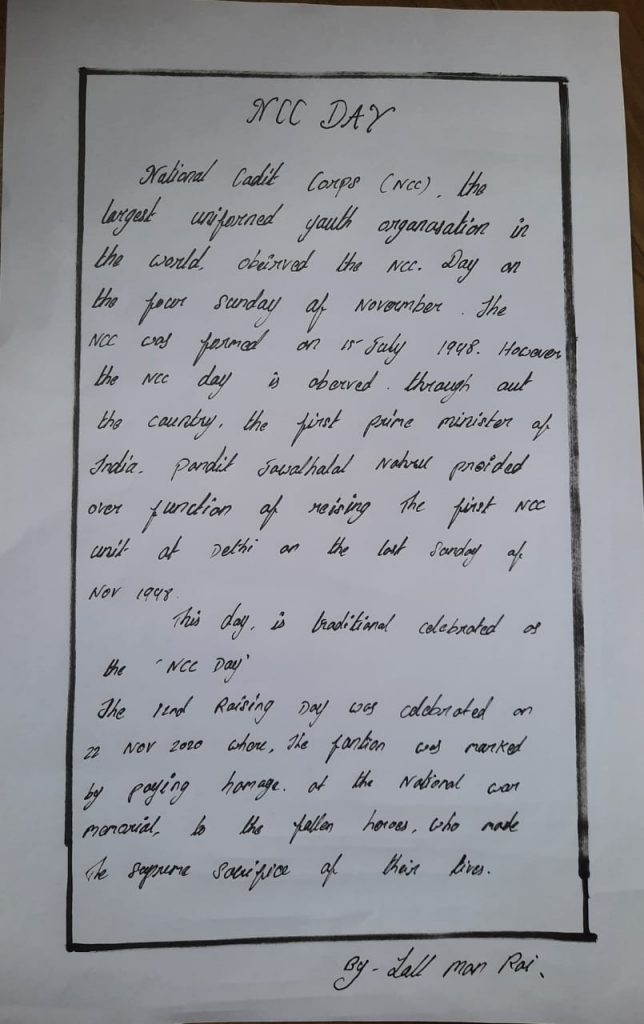 NCC DAY
National Cadit Corps (NCC), the
largest uniformed youth organasation in
the world, obeirved the NCC. Day on
the four sunday of Novermber. The
NCC was formed on 15 July 1948. However
the NCC day is oberved. through out
the country, the first prime minister of
India. Pandit Jawalhalal Nahrul proided
over function of reising The first NCC
unit at Delhi on the last Sunday of
Nov 1948.
This day, is traditional celebrated as
the 'NCC Day'
The 72nd Raising Day was celebrated on
22 Nov 2020 whare, The fontion was marked
by paying homage. at the National war
memorial, to the fallen heroes, who made
The supreme sacrifice of their lives.
By - Lall man Rai.